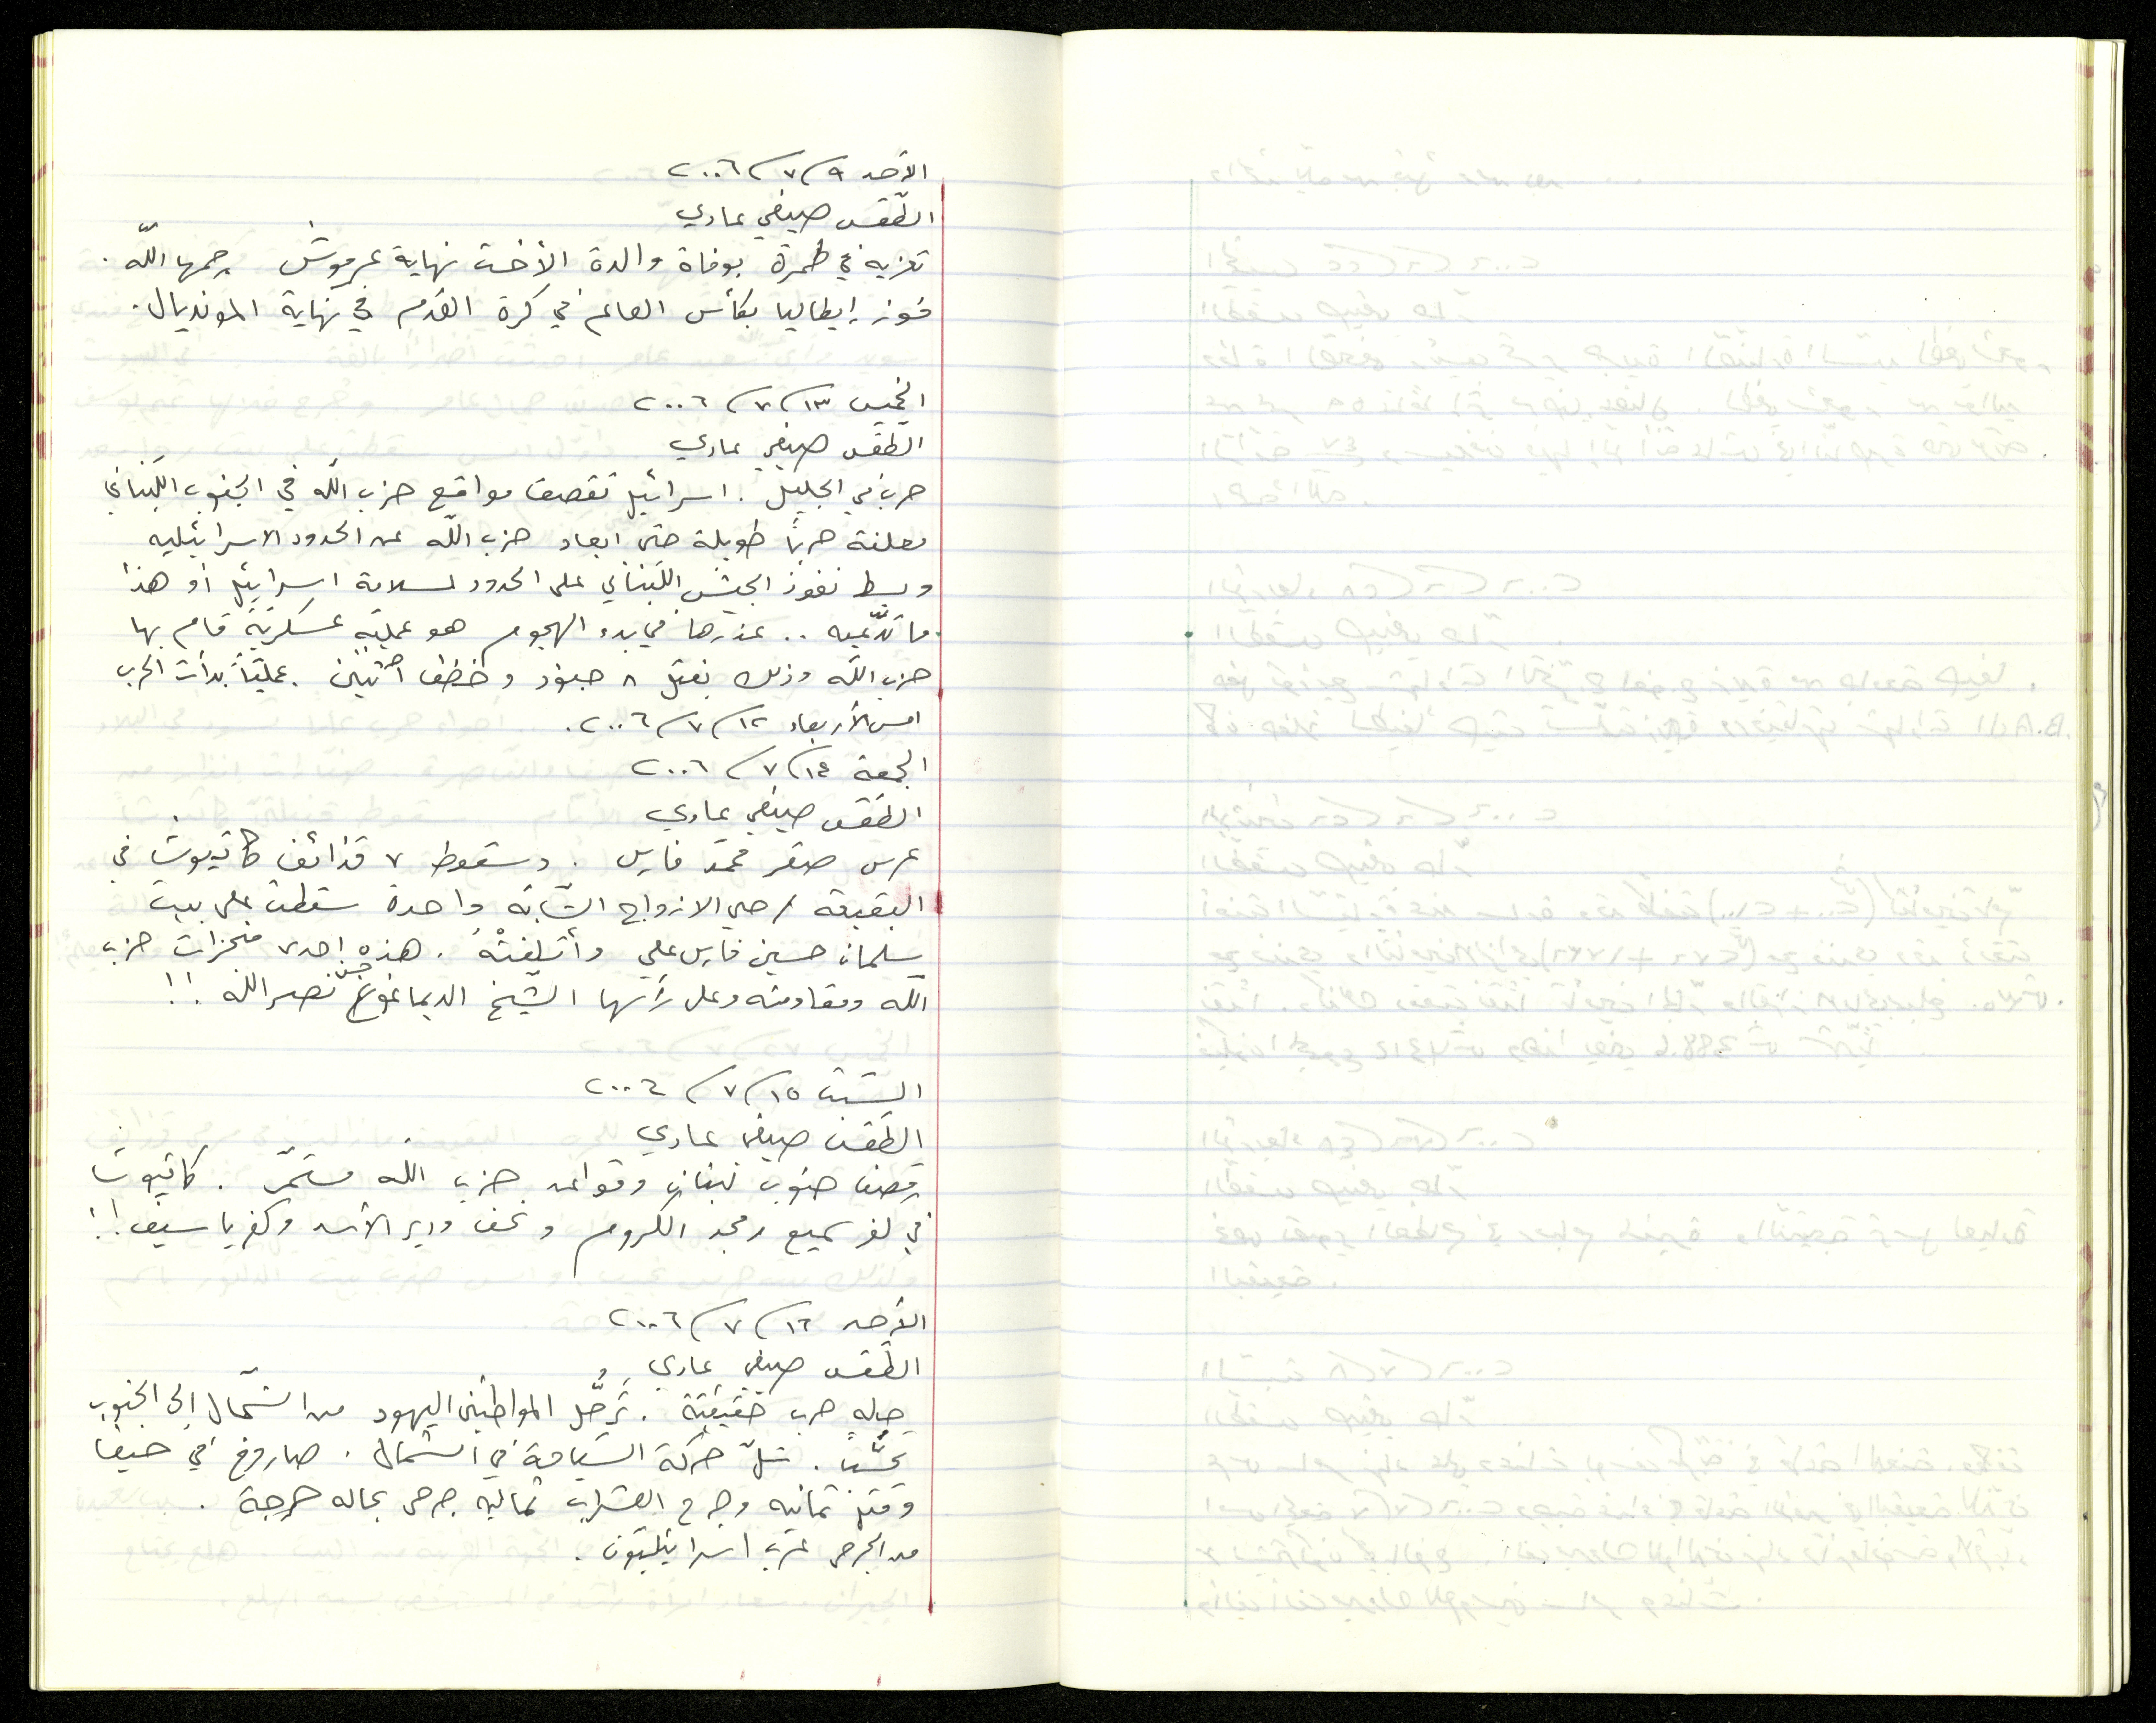 الأحد ٩/٧/٢٠٠٦
الطّقس صيفي عادي
تعزيه في طمرة بوفاة والدة الأخت نهاية عرموش رحمها اللّه.
فوز إيطاليا بكأس العالم في كرة القدم في نهاية المونديال.
الخميس ١٣/٧/٢٠٠٦
الطّقس صيفي عادي
حرب في الجليل. اسرائيل تقصف مواقع حزب اللّه في الجنوب اللّبناني
معلنة حربًا طويلة حتى ابعاد حزب اللّه عن الحدود الاسرائيليه
وبسط نفوذ الجيش اللّبناني على الحدود لسلامة اسرائيل أو هذا
ما تدّعيه .. عذرها في بدء الهجوم هو عمليّة عسكريّة قام بها
حزب اللّه وذلك بقتل ٨ جنود وخطف اثنين. عمليًّا بدأت الحرب
امس الأربعاء ١٢/٧/٢٠٠٦.
الجمعة ١٤/٧/٢٠٠٦
الطّقس صيفي عادي
عرس صقر محمّد فارس. وسقوط ٧ قذائف كاتيوشا في
البقيعة / حي الازواج الشّابّه واحدة سقطت على بيت
سلمان حسين فارس علي وأتلفتْهُ. هذه إحدى منجزات حزب
الله ومقاومته وعلى رأسها الشّيخ الديماغوغي حسن نصر اللّه !!
السّبت ١٥/٧/٢٠٠٦
الطّقس صيفي عادي
قصف جنوب لبنان وقواعد حزب اللّه مستمّر. كاتيوشا
في كفر سميع ومجد الكروم ونحف ودير الأسد وكفر ياسيف!!
الأحد ١٦/٧/٢٠٠٦
الطّقس صيفي عادي
حاله حرب حقيقيّة. تَرحُّل المواطنين اليهود من الشّمال إلى الجنوب
تحسُّبًا. شلّ حركة السّياحة في الشّمال. صاروخ في حيفا
وقتل ثمانيه وجرح العشرات ثمانيه جرحى بحاله حرجة.
من الجرحى عرب اسرائيليّون.